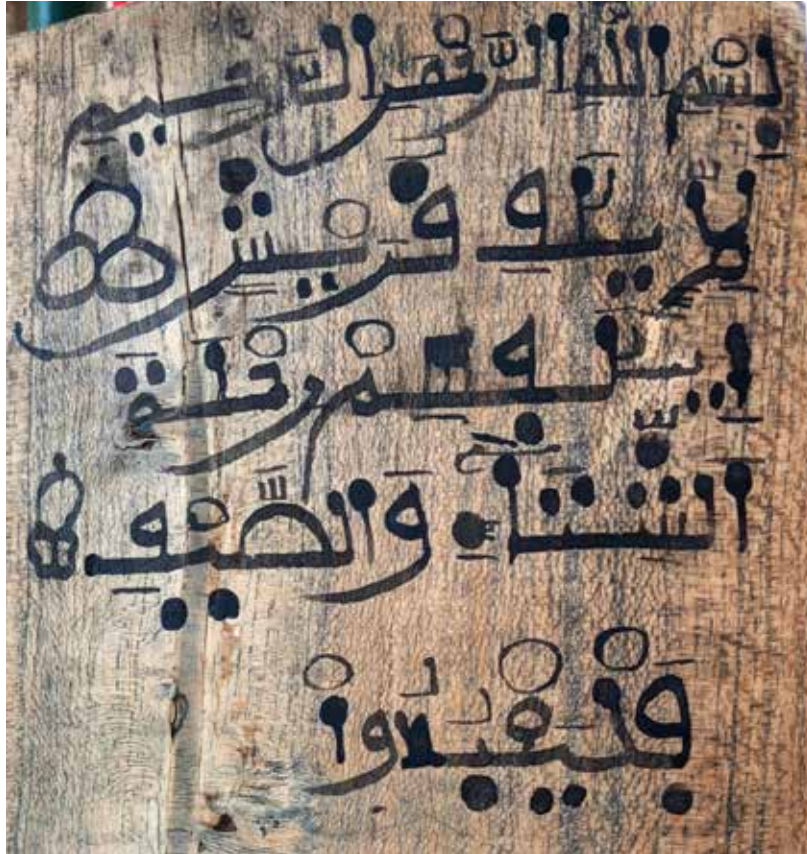 بِسْمِ اللَّهِ الرَّحْمَٰنِ الرَّحِيمِ
لِإِيلَٰفِ قُرَيْشٍ
إِۦلَٰفِهِمْ رِحْلَةَ
الشِّتَآءِ وَالصَّيْفِ
فَلْيَعْبُدُواْ